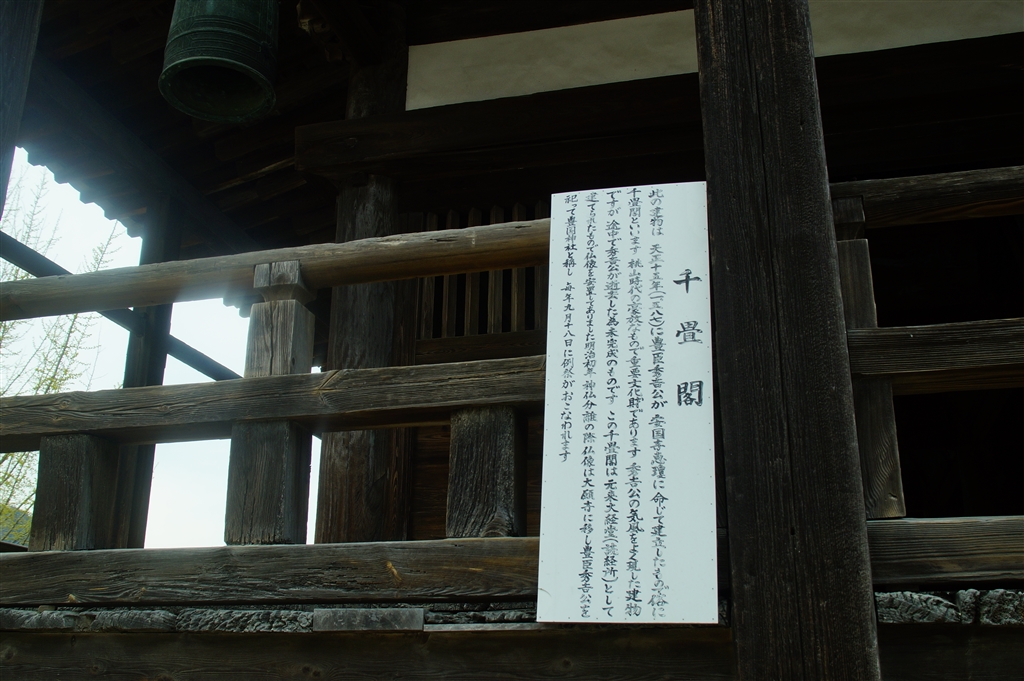 千畳閣
此の建物は 天正十五年(一五八七)に豊臣秀吉公が 安国寺恵瓊に 命じて建立したもので俗に
千畳閣といいます 桃山時代の豪放なもので重要文化財であります 秀吉公の気風をよく現した建物
ですが 途中で秀吉公が逝去した為未完成のものです この千畳閣は 元来大経堂(読経所)として
建てられたもので仏像を安置してありました明治初年 神仏分離の際 仏像は大願寺に移し豊臣秀吉公を
祀って豊国神社と称し 毎年九月十八日に例祭がおこなわれます